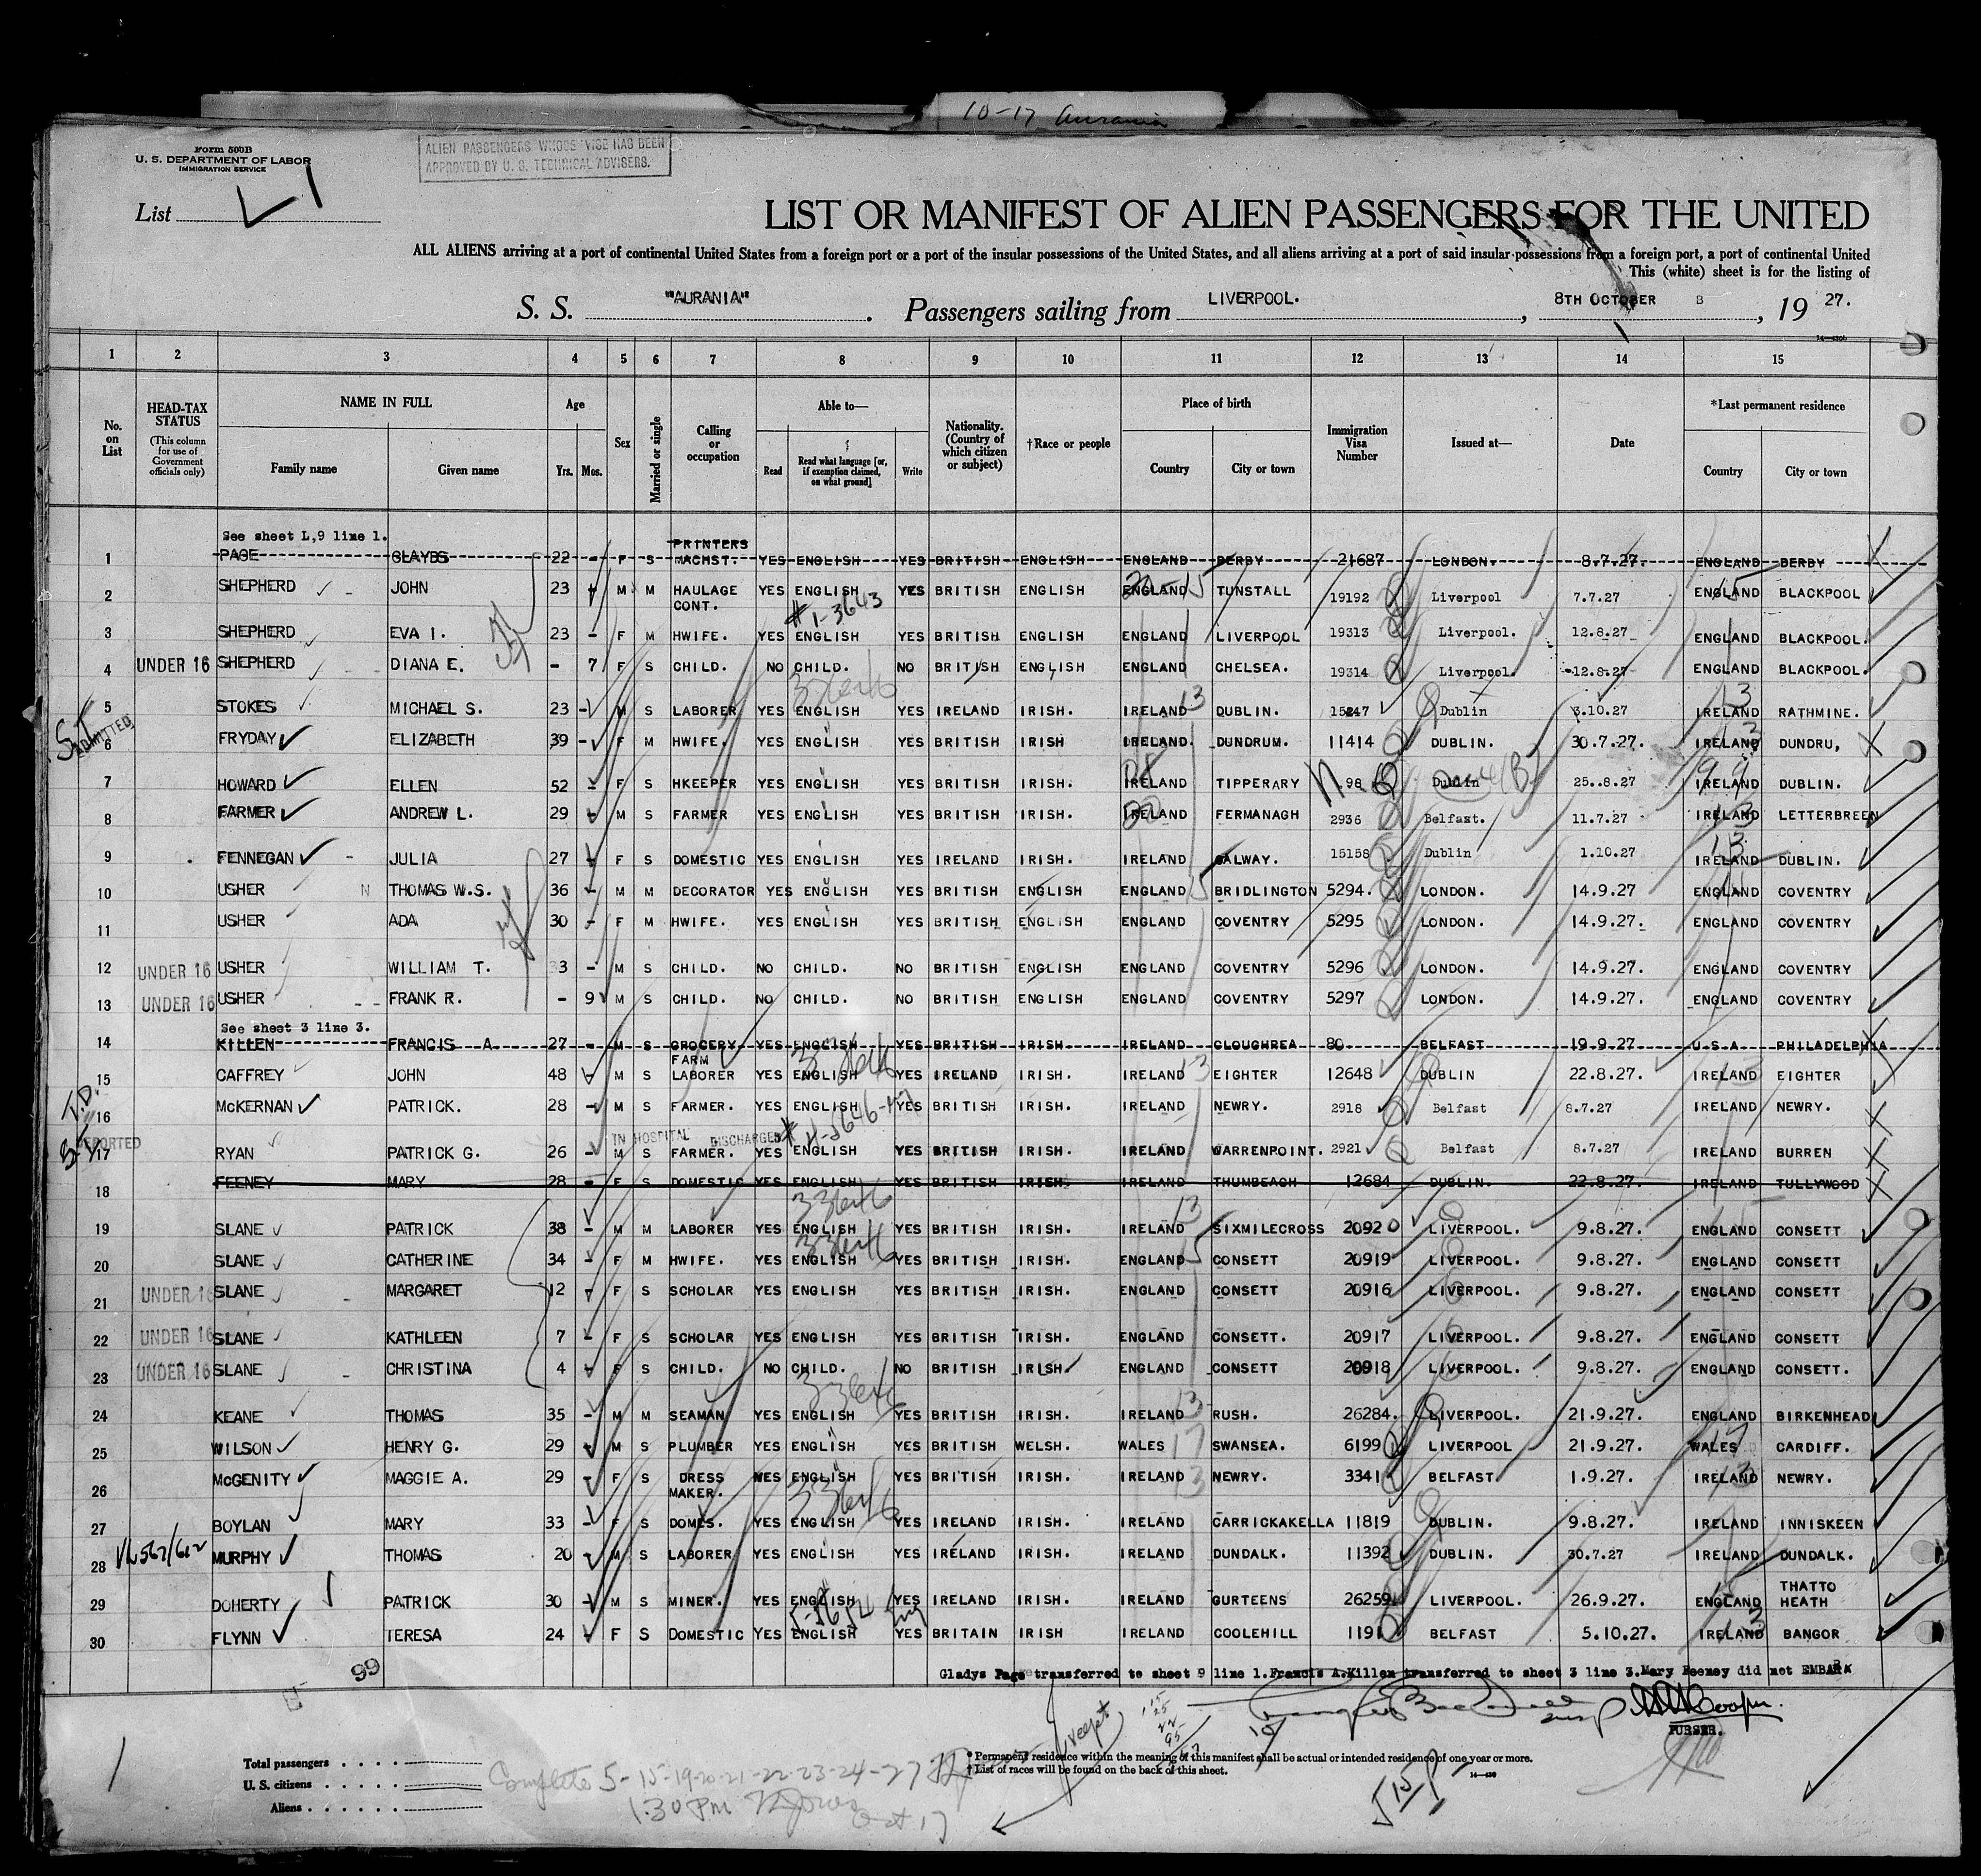 10-17 Aurania
Form 500B
U. S. DEPARTMENT OF LABOR
IMMIGRATION SERVICE
ALIEN PASSENGERS WHOSE VISE HAS BEEN
APPROVED BY U. S. TECHNICAL ADVISERS.
List
LIST OR MANIFEST OF ALIEN PASSENGERS FOR THE UNITED
ALL ALIENS arriving at a port of continental United States from a foreign port or a port of the insular possessions of the United States, and all aliens arriving at a port of said insular possessions from a foreign port, a port of continental United
This (white) sheet is for the listing of
S. S. "AURANIA" . Passengers sailing from LIVERPOOL. , 8TH OCTOBER B , 19 27.
1 2 3 4 5 6 7 8 9 10 11 12 13 14 15
No. on List
HEAD-TAX STATUS (This column for use of Government officials only)
NAME IN FULL Family name Given name
Age Yrs. Mos.
Sex
Married or single
Calling or occupation
Able to— Read Read what language [or, if exemption claimed, on what ground] Write
Nationality. (Country of which citizen or subject)
†Race or people
Place of birth Country City or town
Immigration Visa Number
Issued at—
Date
*Last permanent residence Country City or town
See sheet L,9 line 1. PRINTERS
1 PAGE GLAYDS 22 - F S MACHST. YES ENGLISH YES BRITISH ENGLISH ENGLAND DERBY 21687 LONDON. 8.7.27. ENGLAND DERBY
2 SHEPHERD JOHN 23 M M HAULAGE CONT. YES ENGLISH YES BRITISH ENGLISH ENGLAND TUNSTALL 19192 Liverpool 7.7.27 ENGLAND BLACKPOOL
#1-3643
3 SHEPHERD EVA I. 23 - F M HWIFE. YES ENGLISH YES BRITISH ENGLISH ENGLAND LIVERPOOL 19313 Liverpool. 12.8.27 ENGLAND BLACKPOOL.
4 UNDER 16 SHEPHERD DIANA E. - 7 F S CHILD. NO CHILD. NO BRITISH ENGLISH ENGLAND CHELSEA. 19314 Liverpool. 12.8.27 ENGLAND BLACKPOOL.
5 STOKES MICHAEL S. 23 - M S LABORER YES ENGLISH YES IRELAND IRISH. IRELAND DUBLIN. 15247 Dublin 3.10.27 IRELAND RATHMINE.
S.T ADMITTED
6 FRYDAY ELIZABETH 39 - F M HWIFE. YES ENGLISH YES BRITISH IRISH IRELAND. DUNDRUM. 11414 DUBLIN. 30.7.27. IRELAND DUNDRU,
7 HOWARD ELLEN 52 - F S HKEEPER YES ENGLISH YES BRITISH IRISH. IRELAND TIPPERARY 98 Dublin 25.8.27 IRELAND DUBLIN.
8 FARMER ANDREW L. 29 - M S FARMER YES ENGLISH YES BRITISH IRISH. IRELAND FERMANAGH 2936 Belfast. 11.7.27 IRELAND LETTERBREEN
9 FENNEGAN JULIA 27 - F S DOMESTIC YES ENGLISH YES IRELAND IRISH. IRELAND GALWAY. 15158 Dublin 1.10.27 IRELAND DUBLIN.
10 USHER THOMAS W.S. 36 - M M DECORATOR YES ENGLISH YES BRITISH ENGLISH ENGLAND BRIDLINGTON 5294. LONDON. 14.9.27 ENGLAND COVENTRY
11 USHER ADA 30 - F M HWIFE. YES ENGLISH YES BRITISH ENGLISH ENGLAND COVENTRY 5295 LONDON. 14.9.27. ENGLAND COVENTRY
12 UNDER 16 USHER WILLIAM T. 3 - M S CHILD. NO CHILD. NO BRITISH ENGLISH ENGLAND COVENTRY 5296 LONDON. 14.9.27. ENGLAND COVENTRY
13 UNDER 16 USHER FRANK R. - 9 M S CHILD. NO CHILD. NO BRITISH ENGLISH ENGLAND COVENTRY 5297 LONDON. 14.9.27. ENGLAND COVENTRY
See sheet 3 line 3.
14 KILLEN FRANCIS A 27 - M S GROCERY YES ENGLISH YES BRITISH IRISH IRELAND CLOUGHREA 80 BELFAST 19.9.27. U.S.A PHILADELPHIA
15 CAFFREY JOHN 48 - M S FARM LABORER YES ENGLISH YES IRELAND IRISH. IRELAND EIGHTER 12648 DUBLIN 22.8.27. IRELAND EIGHTER
T.D.
16 McKERNAN PATRICK. 28 - M S FARMER. YES ENGLISH YES BRITISH IRISH. IRELAND NEWRY. 2918 Belfast 8.7.27 IRELAND NEWRY.
S.T DEPORTED IN HOSPITAL DISCHARGED
17 RYAN PATRICK G. 26 - M S FARMER. YES ENGLISH YES BRITISH IRISH. IRELAND WARRENPOINT. 2921 Belfast 8.7.27 IRELAND BURREN
18 FEENEY MARY 28 - F S DOMESTIC YES ENGLISH YES BRITISH IRISH. IRELAND THUMBEAGH 12684 DUBLIN. 22.8.27. IRELAND TULLYWOOD
19 SLANE PATRICK 38 - M M LABORER YES ENGLISH YES BRITISH IRISH. IRELAND SIXMILECROSS 20920 LIVERPOOL. 9.8.27. ENGLAND CONSETT
20 SLANE CATHERINE 34 - F M HWIFE. YES ENGLISH YES BRITISH IRISH. ENGLAND CONSETT 20919 LIVERPOOL. 9.8.27. ENGLAND CONSETT
21 UNDER 16 SLANE MARGARET 12 - F S SCHOLAR YES ENGLISH YES BRITISH IRISH. ENGLAND CONSETT 20916 LIVERPOOL. 9.8.27. ENGLAND CONSETT
22 UNDER 16 SLANE KATHLEEN 7 - F S SCHOLAR YES ENGLISH YES BRITISH IRISH. ENGLAND CONSETT. 20917 LIVERPOOL. 9.8.27. ENGLAND CONSETT
23 UNDER 16 SLANE CHRISTINA 4 - F S CHILD. NO CHILD. NO BRITISH IRISH ENGLAND CONSETT 20918 LIVERPOOL. 9.8.27. ENGLAND CONSETT.
24 KEANE THOMAS 35 - M M SEAMAN YES ENGLISH YES BRITISH IRISH. IRELAND RUSH. 26284. LIVERPOOL. 21.9.27. ENGLAND BIRKENHEAD
25 WILSON HENRY G. 29 - M S PLUMBER YES ENGLISH YES BRITISH WELSH. WALES SWANSEA. 6199 LIVERPOOL 21.9.27. WALES CARDIFF.
26 McGENITY MAGGIE A. 29 - F S DRESS MAKER. YES ENGLISH YES BRITISH IRISH. IRELAND NEWRY. 3341 BELFAST 1.9.27. IRELAND NEWRY.
27 BOYLAN MARY 33 - F S DOMES. YES ENGLISH YES IRELAND IRISH. IRELAND CARRICKAKELLA 11819 DUBLIN. 9.8.27. IRELAND INNISKEEN
28 MURPHY THOMAS 20 - M S LABORER YES ENGLISH YES IRELAND IRISH. IRELAND DUNDALK. 11392 DUBLIN. 30.7.27 IRELAND DUNDALK.
29 DOHERTY PATRICK 30 - M S MINER. YES ENGLISH YES IRELAND IRISH. IRELAND GURTEENS 26259 LIVERPOOL. 26.9.27. ENGLAND THATTO HEATH
30 FLYNN TERESA 24 - F S DOMESTIC YES ENGLISH YES BRITAIN IRISH IRELAND COOLEHILL 1191 BELFAST 5.10.27. IRELAND BANGOR
99
Gladys Page transferred to sheet 9 line 1.Francis A.Killen transferred to sheet 3 line 3.Mary Feeney did not EMBARK
PURSER.
* Permanent residence within the meaning of this manifest shall be actual or intended residence of one year or more.
† List of races will be found on the back of this sheet.
Total passengers
U. S. citizens
Aliens
Complete 5-15-19-20-21-22-23-24-27
1.30 PM
Oct 17